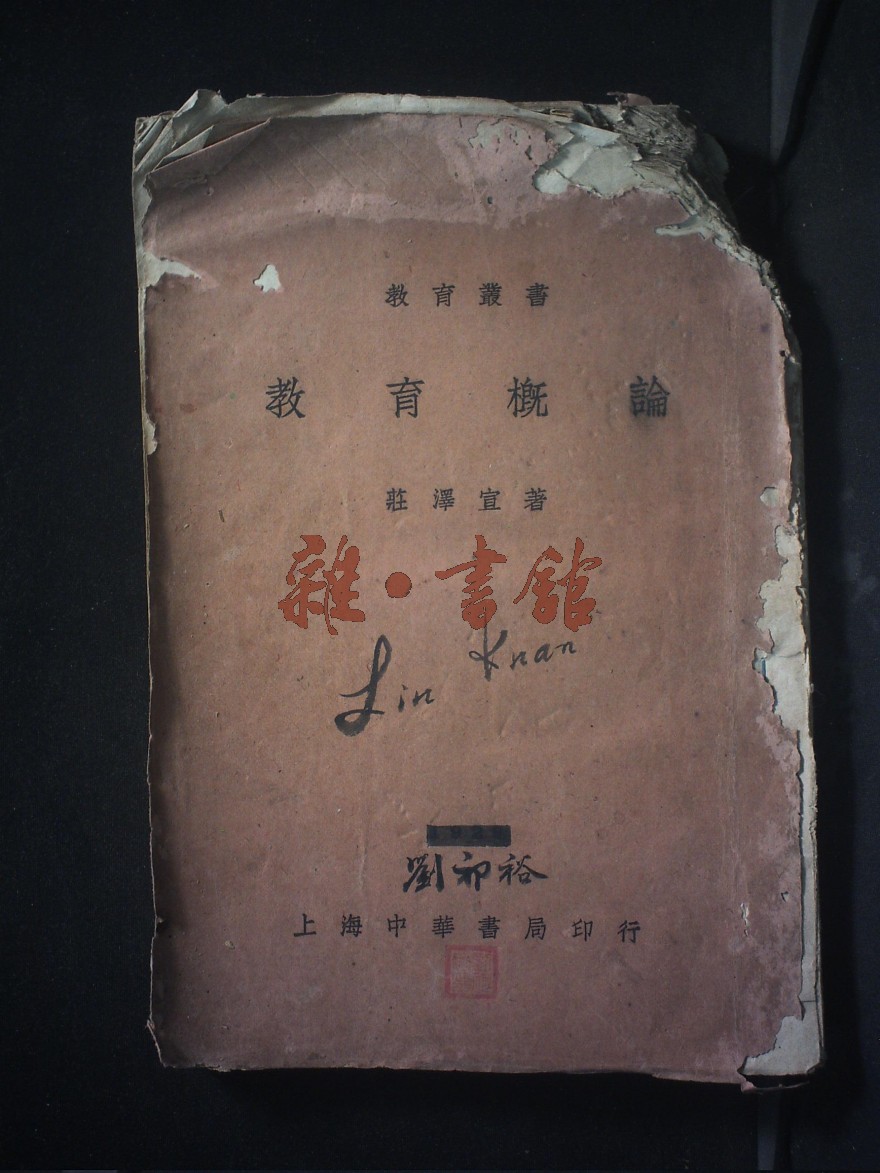 教育叢書
教育概論
莊澤宣著
雜·書館
Lin Kuan
劉祁裕
上海中華書局印行